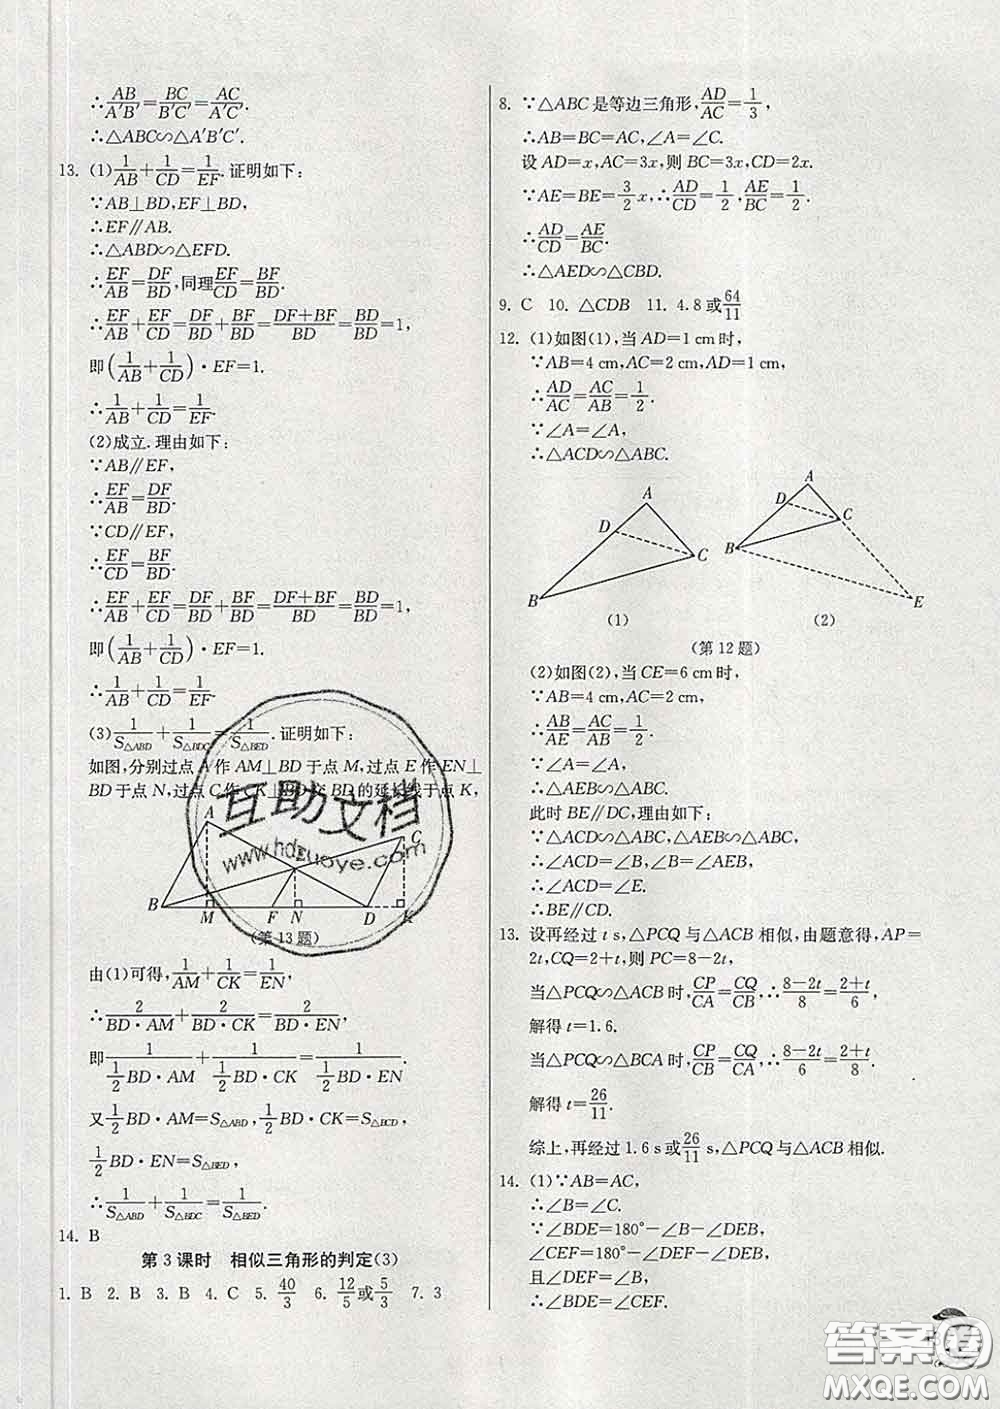 ∴AB/A′B′=BC/B′C′=AC/A′C′.
∴△ABC∽△A′B′C′.
13. (1)1/AB+1/CD=1/EF.证明如下:
∵AB⊥BD,EF⊥BD,
∴EF∥AB.
∴△ABD∽△EFD.
∴EF/AB=DF/BD,同理EF/CD=BF/BD.
∴EF/AB+EF/CD=DF/BD+BF/BD=DF+BF/BD=BD/BD=1,
即(1/AB+1/CD)·EF=1.
∴1/AB+1/CD=1/EF.
(2)成立.理由如下:
∵AB∥EF,
∴EF/AB=DF/BD.
∵CD∥EF,
∴EF/CD=BF/BD.
∴EF/AB+EF/CD=DF/BD+BF/BD=DF+BF/BD=BD/BD=1,
即(1/AB+1/CD)·EF=1.
∴1/AB+1/CD=1/EF.
(3)1/S△ABD+1/S△BDC=1/S△BED.证明如下:
如图,分别过点A作AM⊥BD于点M,过点E作EN⊥
BD于点N,过点C作CK⊥BD交BD的延长线于点K,
互助文档
www.hdzuoye.com
A
E
C
B M F N D K
(第13题)
由(1)可得,1/AM+1/CK=1/EN,
∴2/BD·AM+2/BD·CK=2/BD·EN,
即1/(1/2BD·AM)+1/(1/2BD·CK)=1/(1/2BD·EN).
又1/2BD·AM=S△ABD,1/2BD·CK=S△BCD,
1/2BD·EN=S△BED,
∴1/S△ABD+1/S△BDC=1/S△BED.
14. B
第3课时 相似三角形的判定(3)
1. B 2. B 3. B 4. C 5. 40/3 6. 12/5或5/3 7. 3
8. ∵△ABC是等边三角形,AD/AC=1/3,
∴AB=BC=AC,∠A=∠C.
设AD=x,AC=3x,则BC=3x,CD=2x.
∵AE=BE=3/2x,∴AD/CD=1/2,AE/BC=1/2.
∴AD/CD=AE/BC.
∴△AED∽△CBD.
9. C 10. △CDB 11. 4.8或64/11
12. (1)如图(1),当AD=1 cm时,
∵AB=4 cm,AC=2 cm,AD=1 cm,
∴AD/AC=AC/AB=1/2.
∵∠A=∠A,
∴△ACD∽△ABC.
A
D
C
B
(1)
A
D
C
B
E
(2)
(第12题)
(2)如图(2),当CE=6 cm时,
∵AB=4 cm,AC=2 cm,
∴AB/AE=AC/AB=1/2.
∵∠A=∠A,
∴△AEB∽△ABC.
此时BE∥DC,理由如下:
∵△ACD∽△ABC,△AEB∽△ABC,
∴∠ACD=∠B,∠B=∠AEB,
∴∠ACD=∠E.
∴BE∥CD.
13. 设再经过t s,△PCQ与△ACB相似,由题意得,AP=
2t,CQ=2+t,则PC=8-2t,
当△PCQ∽△ACB时,CP/CA=CQ/CB,∴8-2t/8=2+t/6,
解得t=1.6.
当△PCQ∽△BCA时,CP/CB=CQ/CA,∴8-2t/6=2+t/8.
解得t=26/11.
综上,再经过1.6 s或26/11 s,△PCQ与△ACB相似.
14. (1)∵AB=AC,
∴∠B=∠C.
∵∠BDE=180°-∠B-∠DEB,
∠CEF=180°-∠DEF-∠DEB,
且∠DEF=∠B,
∴∠BDE=∠CEF.
答案圈
MXQE.COM